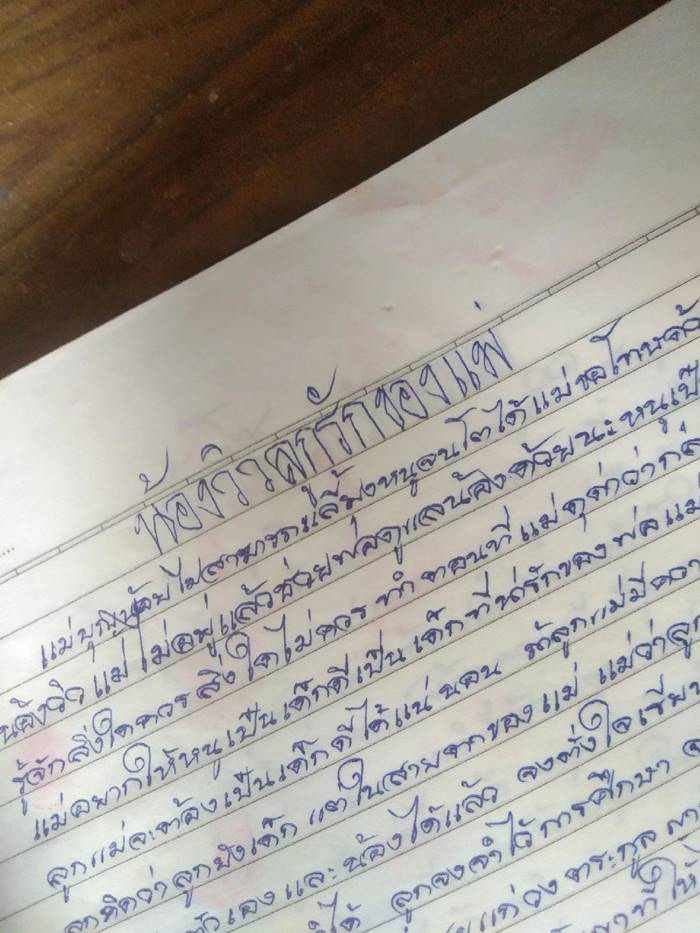 น้องวิวลูกรักของแม่
แม่บุญน้อยไม่สามารถเลี้ยงหนูจนโตได้แม่ขอโทษด้ว
น้องวิว แม่ไม่อยู่แล้วช่วยพ่อดูแลน้องด้วยนะหนูเป็
รู้จักสิ่งใดควรสิ่งใดไม่ควรทำ ตอนที่แม่ดุด่าว่ากล่
แม่อยากให้หนูเป็นเด็กดีเป็นเด็กที่น่ารักของพ่อแม่
ลูกแม่จะต้องเป็นเด็กดีได้แน่นอน ลูกแม่มีควา
ลูกคิดว่าลูกยังเด็ก แต่ในสายตาของแม่ แม่ว่าลูก
ตัวเองและน้องได้แล้ว จงตั้งใจเรีย
ได้ ลูกจงจำไว้การศึกษา
วงตระกูล
ที่ให้